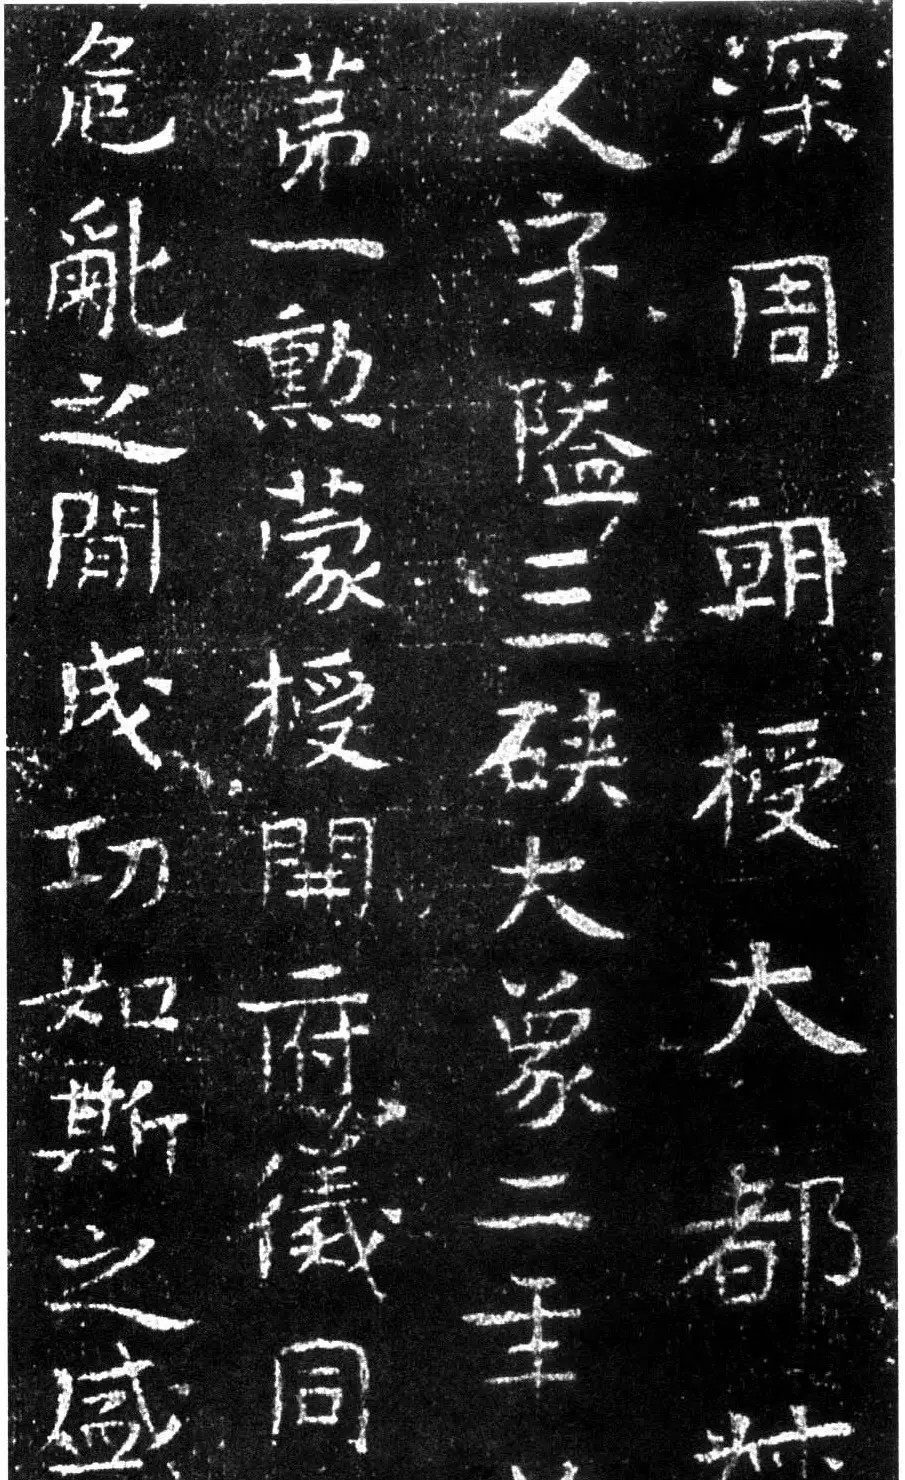 深周朝授大都
人守隘三硤大象二年
苐一勲蒙授開府儀同
危亂之間成功如斯之盛